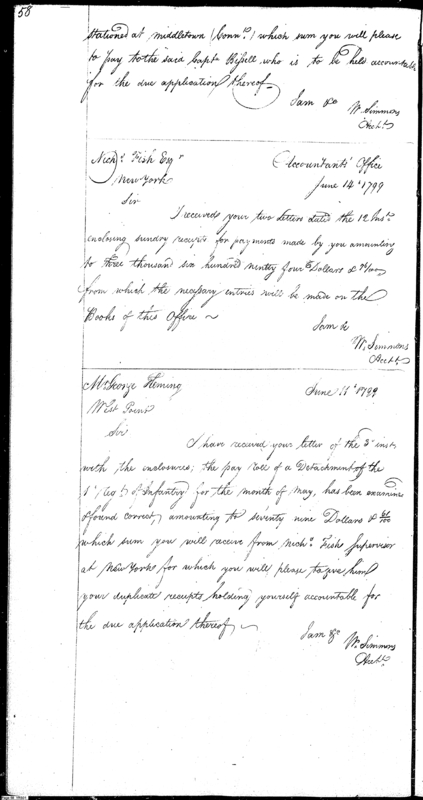 58
stationed at Middletown (Conn.) which sum you will please
to pay to the said Capt. Bissell who is to be held accountable
for the due application thereof
I am &c
W. Simmons
Acct.
Nichs. Fish Esqr
New York
Accountants Office
June 14th 1799
Sir
I received your two letters dated the 12 Inst.
enclosing sundry receipts for payments made by you amounting
to three thousand six hundred ninety four Dollars &
from which the necessary entries will be made on the
Books of this Office
I am &c
W. Simmons
Acct.
Mr George Fleming
West Point
June 1799
Sir
I have received your letter of the 3d inst.
with the enclosures; the pay roll of a Detachment of the
1st Regt. of Infantry for the month of May, has been examined
& found correct, amounting to seventy nine Dollars &
which sum you will receive from Nichs. Fish Supervisor
at New York for which you will please to give him
your duplicate receipts, holding yourself accountable for
the due application thereof
I am &c
W. Simmons
Acct.